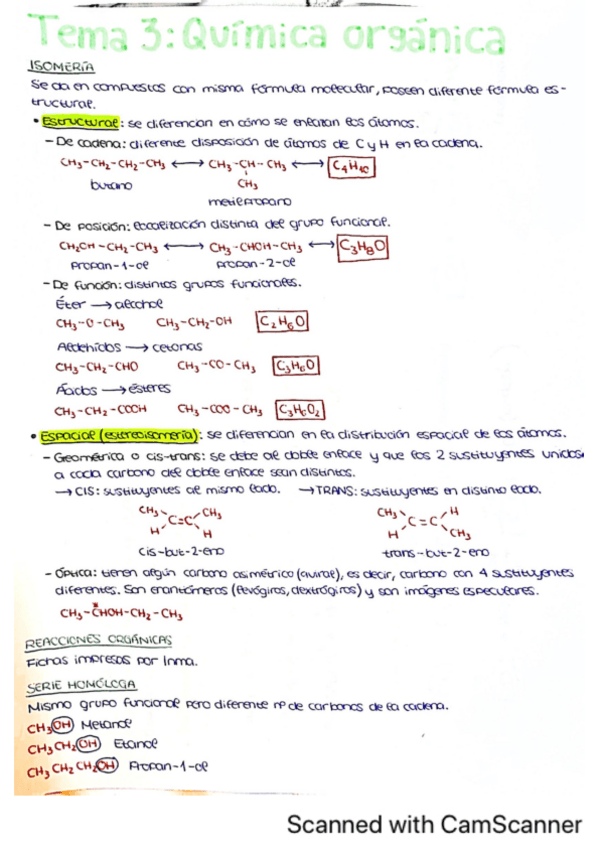 Tema 3: Química orgánica
ISOMERÍA
Se da en compuestos con misma fórmula molecular, poseen diferente fórmula es-
tructural.
• Estructural: se diferencian en cómo se enlazan los átomos.
- De cadena: diferente disposición de átomos de C y H en la cadena.
CH3-CH2-CH2-CH3 ⟷ CH3-CH-CH3 ⟷ C4H10
CH3
butano
metilpropano
- De posición: localización distinta del grupo funcional.
CH2OH-CH2-CH3 ⟷ CH3-CHOH-CH3 ⟷ C3H8O
Propan-1-ol propan-2-ol
- De función: distintos grupos funcionales.
Éter → alcohol
CH3-O-CH3 CH3-CH2-OH C2H6O
Aldehídos → cetonas
CH3-CH2-CHO CH3-CO-CH3 C3H6O
Ácidos → ésteres
CH3-CH2-COOH CH3-COO-CH3 C3H6O2
• Espacial (estereoisomería): se diferencian en la distribución espacial de los átomos.
- Geométrica o cis-trans: se debe al doble enlace y que los 2 sustituyentes unidos
a cada carbono del doble enlace sean distintos.
→ CIS: sustituyentes al mismo lado. → TRANS: sustituyentes en distinto lado.
CH3 CH3 CH3 H
C=C C=C
H H H CH3
cis-but-2-eno trans-but-2-eno
- Óptica: tienen algún carbono asimétrico (quiral), es decir, carbono con 4 sustituyentes
diferentes. Son enantiómeros (levógiros, dextrógiros) y son imágenes especulares.
CH3-C*HOH-CH2-CH3
REACCIONES ORGÁNICAS
Fichas impresas por Inma.
SERIE HOMÓLOGA
Mismo grupo funcional pero diferente nº de carbonos de la cadena.
CH3OH Metanol
CH3CH2OH Etanol
CH3CH2CH2OH Propan-1-ol
Scanned with CamScanner